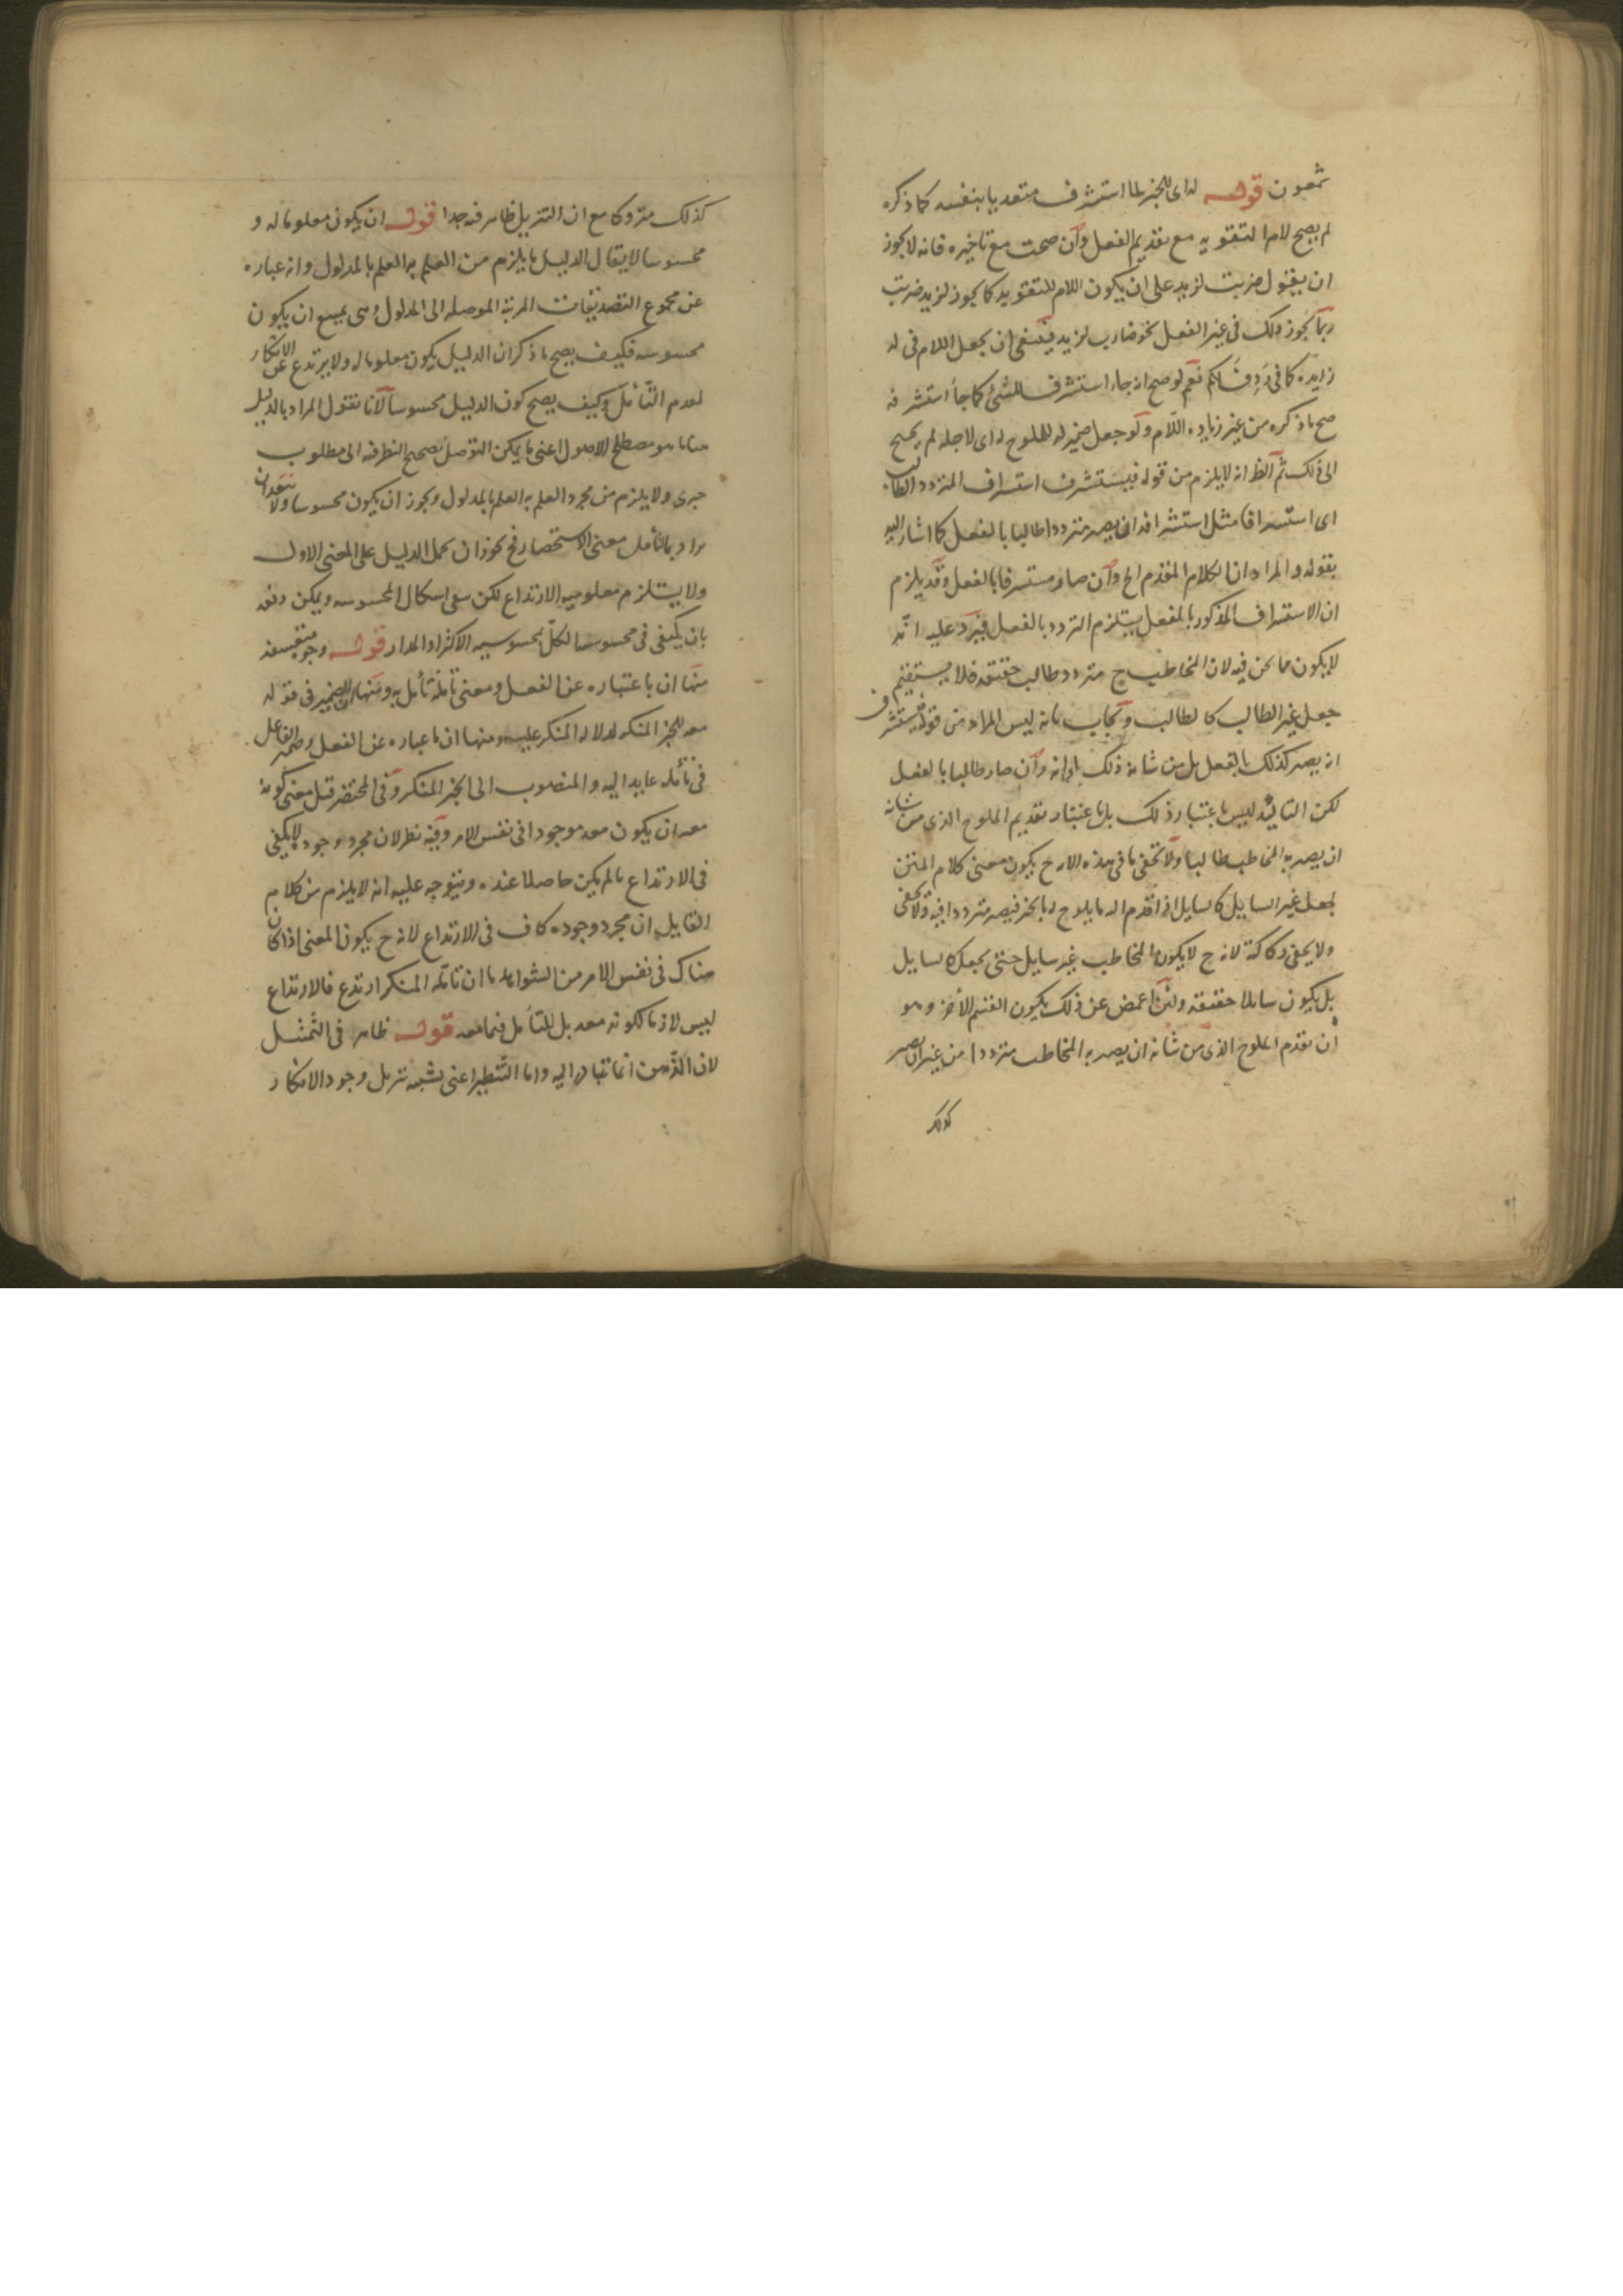 شمعون قوله له اى للخبر لما استشرف متعديا بنفسه كما ذكره
لم يصح لام التقوية مع تقديم الفعل وان صحت مع تاخيره فانه لا يجوز
ان يقول ضربت لزيد على ان يكون اللام للتقويه كما يجوز لزيد ضربت
ربما يجوز ذلك فى غير الفعل نحو ضارب لزيد فينبغى ان يجعل اللام فى له
زايده كما فى رَدِفَ لكم نعم لو صح انه جاء استشرف للشئ كما جاء استشرفه
صح ما ذكره من غير زياده اللام ولو جعل ضمير له للملوح له اى لاجله لم يحتج
الى ذلك ثم الظ انه لا يلزم من قوله فيستشرف استشراف المتردد الطالب
اى استشرافا مثل استشرافه ان يصير مترددا طالبا بالفعل كما اشار اليه
بقوله والمراد ان الكلام المقدم الخ وان صار مستشرفا بالفعل وقد يلزم
ان الاستشراف المذكور بالفعل يستلزم التردد بالفعل فيرد عليه انه
لا يكون مما نحن فيه لان المخاطب ح متردد طالب حقيقة فلا يستقيم
جعل غير الطالب كالطالب ويجاب بانه ليس المراد من قوله فيستشرف
انه يصير كذلك بالفعل بل من شانه ذلك وان صار طالبا بالفعل
لكن التاكيد ليس باعتبار ذلك بل باعتبار تقديم الملوح الذى من شانه
ان يصير به المخاطب طالبا ولا يخفى ما فى هذه الا ح يكون معنى كلام المتن
يجعل غير السايل كالسايل اذا قدم اليه ما يلوح له بالخبر فيصير مترددا فيه ولا يخفى
ولا يخفى ركاكته لانه ح لا يكون المخاطب غير سايل حتى يجعل كالسايل
بل يكون سايلا حقيقه ولئن اغمض عن ذلك يكون القسم الاخر وهو
ان يقدم الملوح الذى من شانه ان يصير به المخاطب مترددا من غير ان يصير
كذلك
كذلك متروكا مع ان التنزيل ظاهر فيه جدا قوله ان يكون معلوما له و
محسوسا لا يقال الدليل ما يلزم من العلم به العلم بالمدلول وانه عباره
عن مجموع التصديقات المرتبة الموصله الى المدلول وهى يمتنع ان يكون
محسوسه فكيف يصح ما ذكر ان الدليل يكون معلوما له ولا يرتدع عن الانكار
لعدم التأمل وكيف يصح كون الدليل محسوسا لانا نقول المراد بالدليل
هنا ما هو مصطلح الاصول اعنى ما يمكن التوصل بصحيح النظر فيه الى مطلوب
خبرى ولا يلزم من مجرد العلم به العلم بالمدلول ويجوز ان يكون محسوسا ولا يبعد ان
يراد بالتأمل معنى الاستحضار فح يجوز ان يحمل الدليل على المعنى الاول
ولا يستلزم معلوميه الارتداع لكن يبقى اشكال المحسوسه ويمكن دفعه
بان يكتفى فى محسوسه الكل بمحسوسيه الاكثر او المدار قوله وجوه متعسفه
منها ان ما عباره عن الفعل ومعنى تأمله تأمل به ومنها ان الضمير فى قوله
معه للخبر المنكر لدلاله المنكر عليه ومنها ان ما عباره عن الفعل وضمير الفاعل
فى تأمله عايد اليه والمنصوب الى الخبر المنكر وفى المختصر قيل معنى كونه
معه ان يكون معه موجودا فى نفس الامر وفيه نظر لان مجرد وجوده لا يكفى
فى الارتداع ما لم يكن حاصلا عنده ويتوجه عليه انه لا يلزم من كلام
القايل ان مجرد وجوده كاف فى الارتداع لانه ح يكون المعنى اذا كان
هناك فى نفس الامر من الشواهد ما ان تأمله المنكر ارتدع فالارتداع
ليس لازما لكونه معه بل للتأمل فيما معه قوله ظاهر فى التمثيل
لان الذهن انما يتبادر اليه واما التنظير اعنى تشبيه تنزيل وجود الانكار